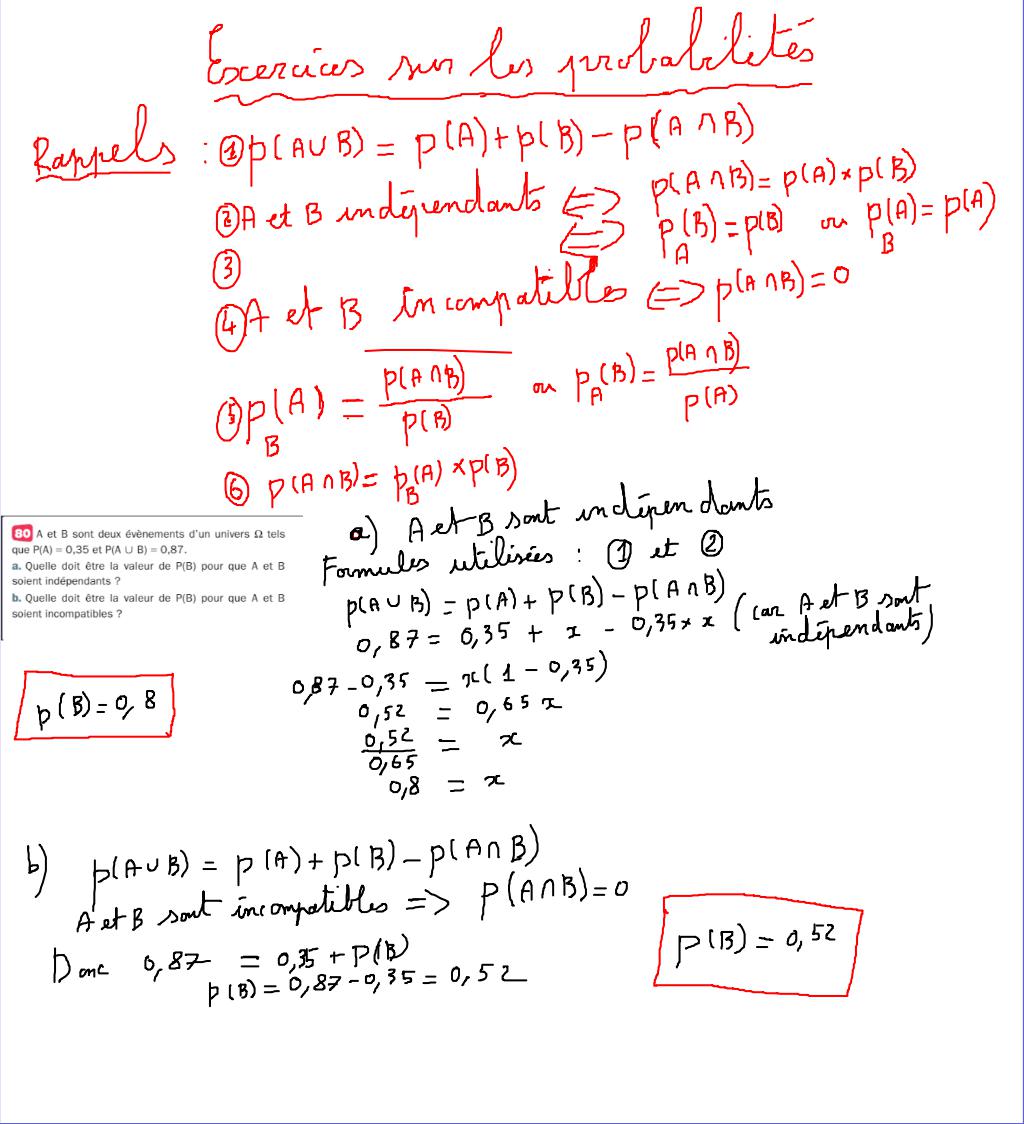 Exercices sur les probabilités
Rappels : ① p(A∪B) = p(A) + p(B) − p(A∩B)
② A et B indépendants ⇔ p(A∩B) = p(A) × p(B)
⇔ p_A(B) = p(B) ou p_B(A) = p(A)
③
④ A et B incompatibles ⇔ p(A∩B) = 0
⑤ p_B(A) = p(A∩B)/p(B) ou p_A(B) = p(A∩B)/p(A)
⑥ p(A∩B) = p_B(A) × p(B)
80 A et B sont deux évènements d'un univers Ω tels
que P(A) = 0,35 et P(A ∪ B) = 0,87.
a. Quelle doit être la valeur de P(B) pour que A et B
soient indépendants ?
b. Quelle doit être la valeur de P(B) pour que A et B
soient incompatibles ?
a) A et B sont indépendants
Formules utilisées : ① et ②
p(A∪B) = p(A) + p(B) − p(A∩B)
0,87 = 0,35 + x − 0,35 × x (car A et B sont
indépendants)
0,87 − 0,35 = x(1 − 0,35)
0,52 = 0,65 x
0,52/0,65 = x
0,8 = x
p(B) = 0,8
b) p(A∪B) = p(A) + p(B) − p(A∩B)
A et B sont incompatibles => P(A∩B) = 0
Donc 0,87 = 0,35 + P(B)
p(B) = 0,87 − 0,35 = 0,52
p(B) = 0,52